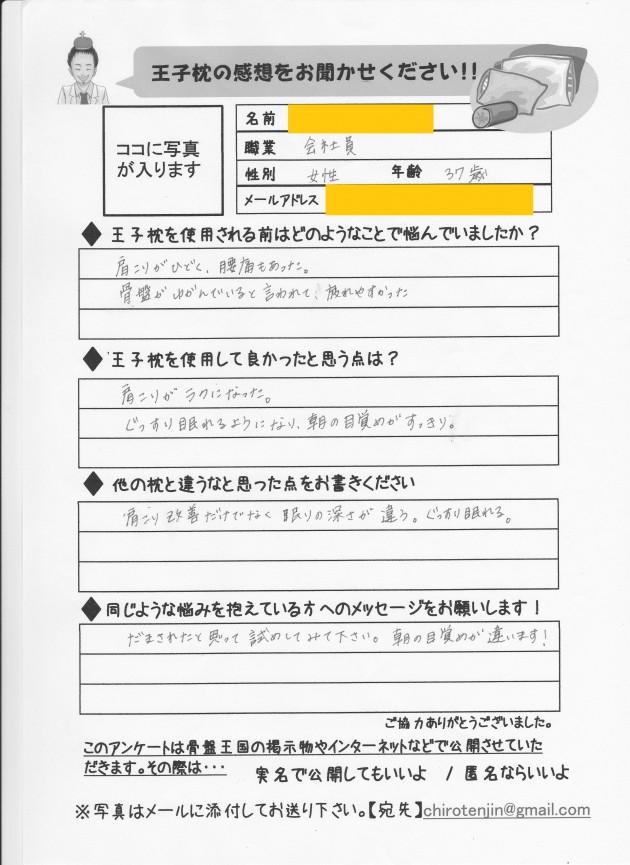 王子枕の感想をお聞かせください!!
ココに写真
が入ります
名前
職業 会社員
性別 女性 年齢 37歳
メールアドレス
◆ 王子枕を使用される前はどのようなことで悩んでいましたか？
肩こりがひどく、腰痛もあった。
骨盤がゆがんでいると言われて、疲れやすかった
◆ 王子枕を使用して良かったと思う点は？
肩こりがラクになった。
ぐっすり眠れるようになり、朝の目覚めがすっきり。
◆ 他の枕と違うなと思った点をお書きください
肩こり改善だけでなく眠りの深さが違う。ぐっすり眠れる。
◆ 同じような悩みを抱えている方へのメッセージをお願いします！
だまされたと思って試めしてみて下さい。朝の目覚めが違います！
ご協力ありがとうございました。
このアンケートは骨盤王国の掲示物やインターネットなどで公開させていた
だきます。その際は・・・ 実名で公開してもいいよ / 匿名ならいいよ
※写真はメールに添付してお送り下さい。【宛先】chirotenjin@gmail.com